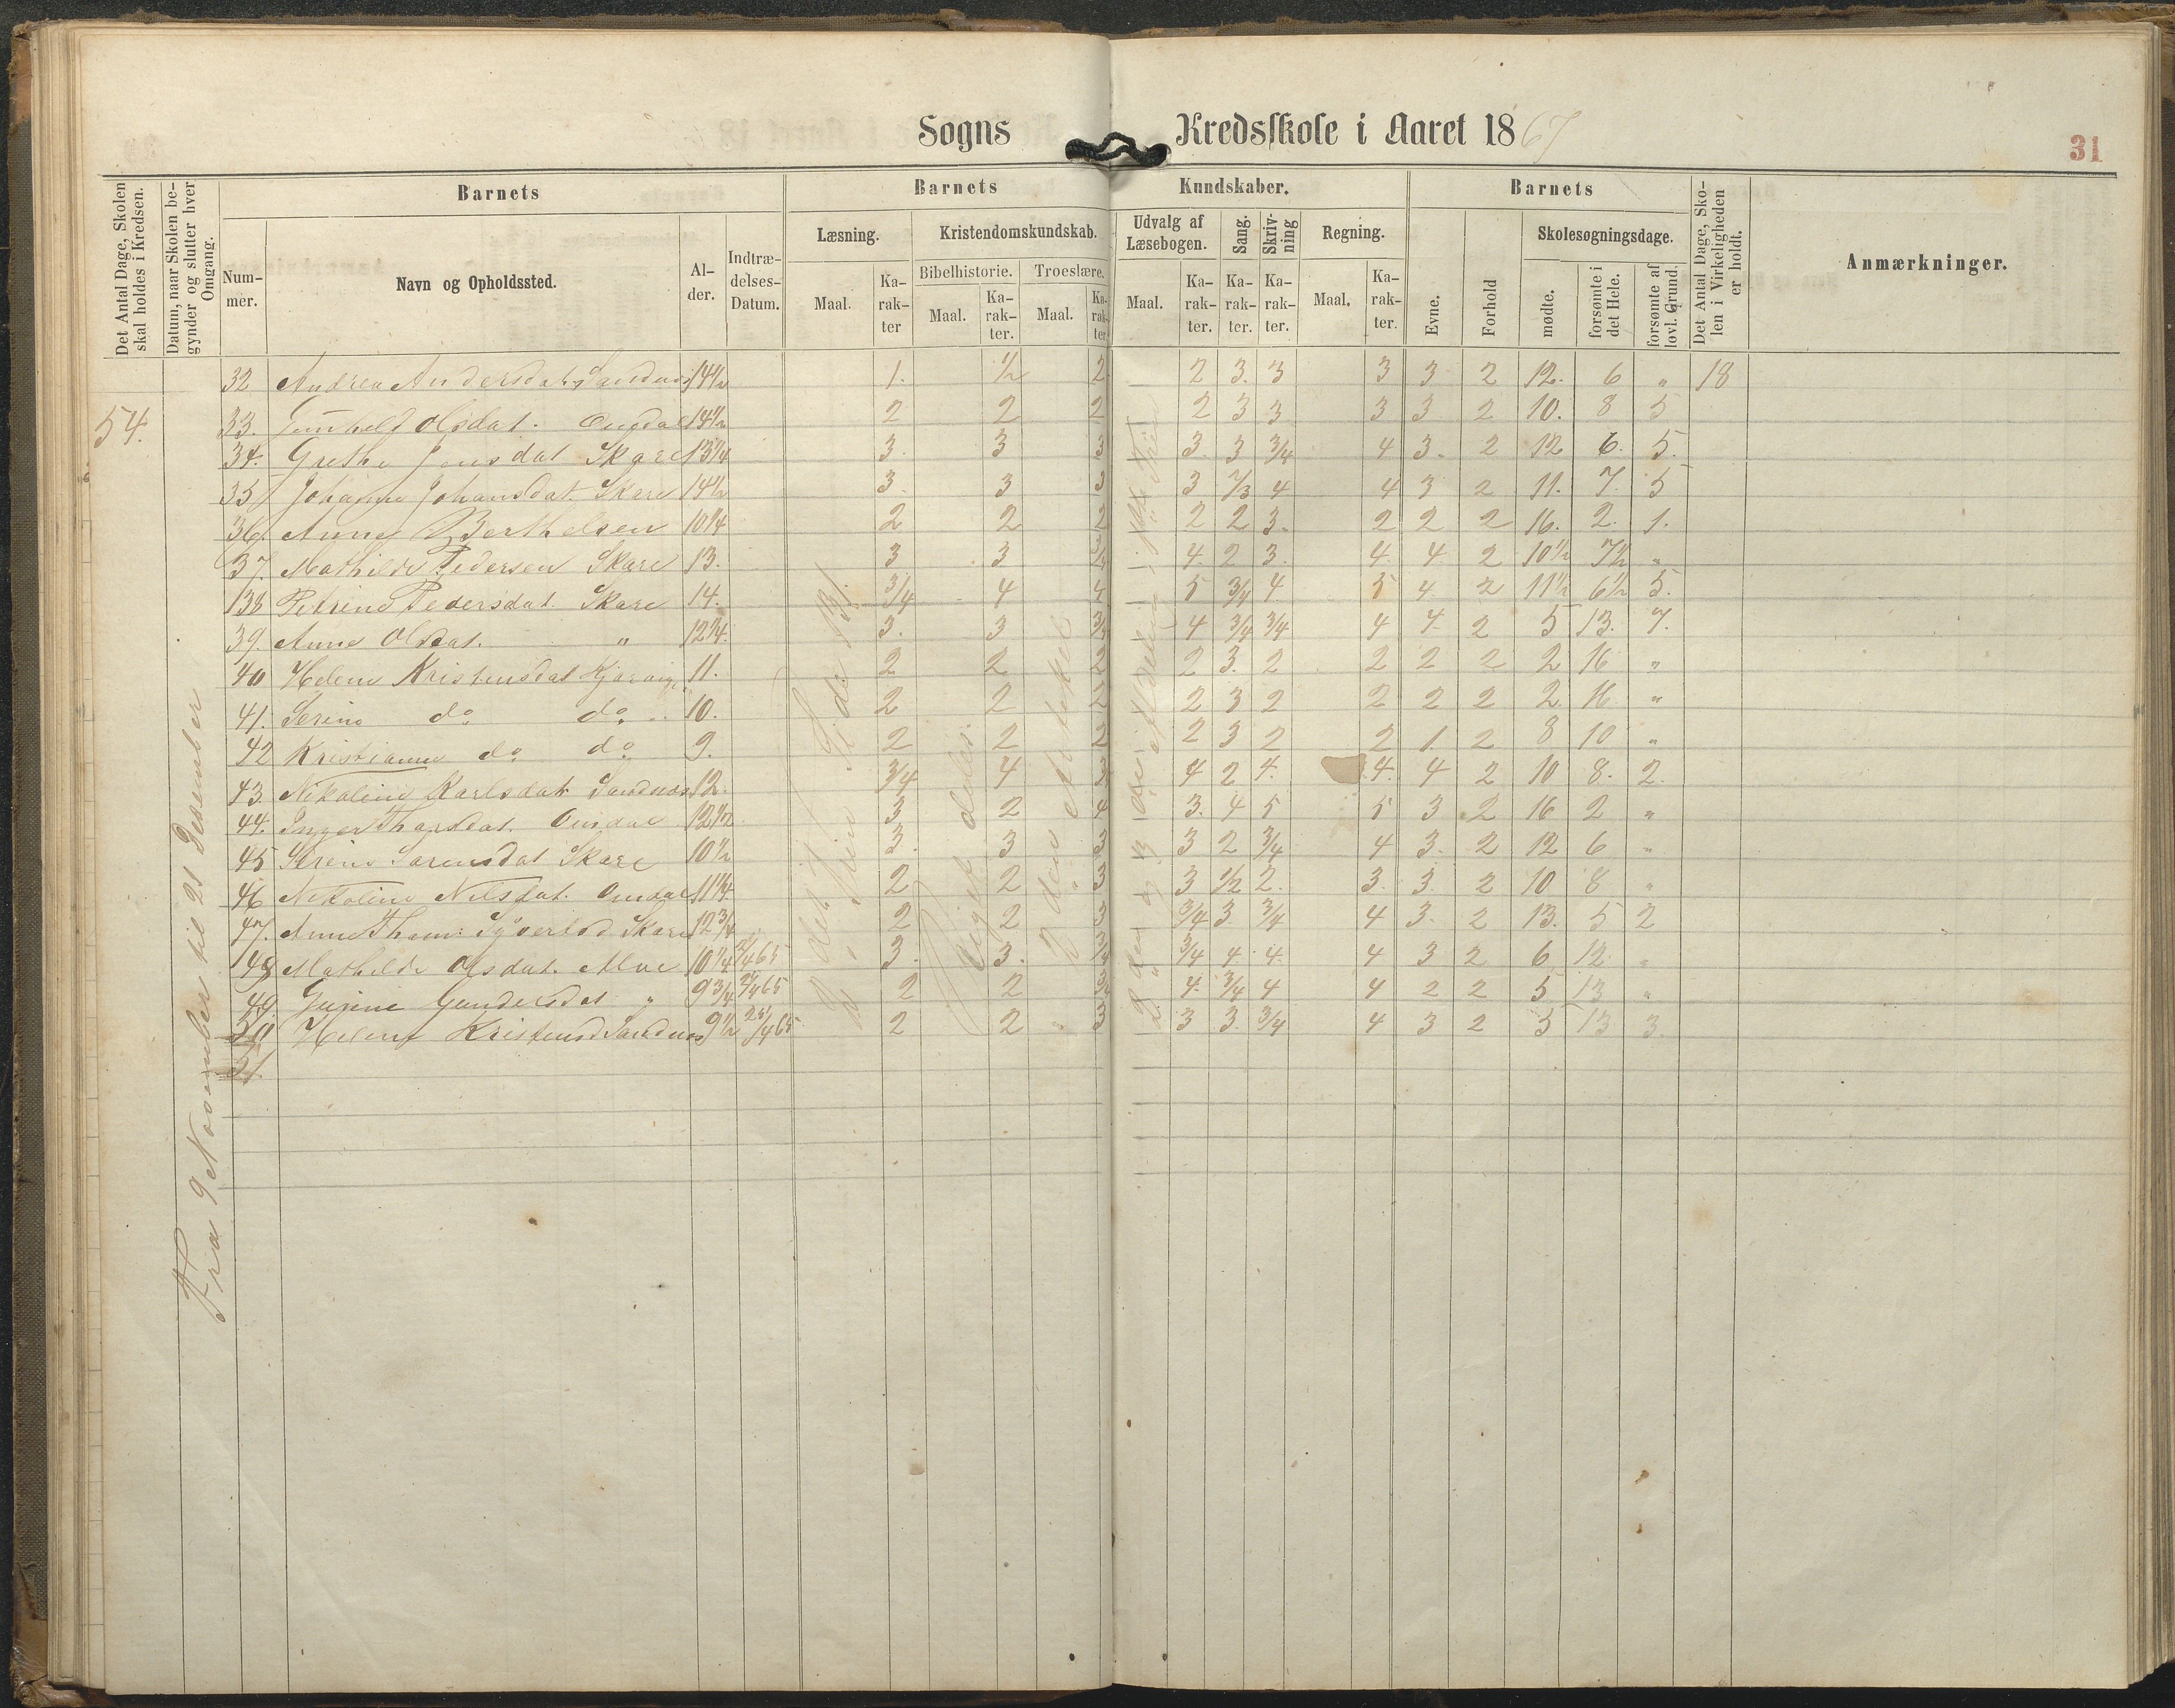 Sogns Kredsskole i Aaret 1867
31
Det Antal Dage, Skolen skal holdes i Kredsen.
Datum, naar Skolen begynder og slutter hver Omgang.
Barnets
Nummer.
Navn og Opholdssted.
Alder.
Indtrædelses-Datum.
Barnets Kundskaber.
Læsning.
Maal.
Karakter
Kristendomskundskab.
Bibelhistorie.
Maal.
Karakter.
Troeslære.
Maal.
Karakter
Udvalg af Læsebogen.
Maal.
Karakter.
Sang.
Karakter.
Skrivning
Karakter.
Regning.
Maal.
Karakter.
Barnets
Evne.
Forhold
Skolesøgningsdage.
mødte.
forsømte i det Hele.
forsømte af lovl. Grund.
Det Antal Dage, Skolen i Virkeligheden er holdt.
Anmærkninger.
54.
Fra 9 November til 21 Desember
32 Andrea Andersdat. Sandnes 14½ 1. ½ 2 2 3. 3 3 3 2 12. 6 " 18
33. Gunhild Olsdat. Omdal 14½ 2 2 2 2 3 3 3 3 2 10. 8 5
34. Grethe Jensdat Skare 13¼ 3. 3 3 3. 3 3/4 4 3. 2 12 6. 5.
35 Johanne Johansdat Skare 14½ 3. 3 3 3 2/3 4 4 3 2 11. 7. 5
36. Anne Berthelsen 10¼ 2 2 2 2 2 3. 2 2 2 16. 2. 1.
37. Mathilde Pedersen Skare 13. 3 3 3/4 4. 2 3. 4. 4 2 10½ 7½ "
38 Petrine Pedersdat. Skare 14. 3/4 4 4 5 3/4 4. 5 4 2 11½ 6½ 5.
39. Anne Olsdat. " 12¼. 3. 3 3/4 4 3/4 3/4 4 4 2 5 13. 7.
40 Helene Kristensdat Kjærvig 11. 2 2 2 2 3. 2 2 2 2 2 16 "
41. Serine do do 10. 2 2 2 2 3 2 2 2 2 2 16 "
42 Kristianne do do 9. 2 2 2 2 3 2 2 1. 2 8 10 "
43. Nikoline Karlsdat Sandnes 12. 3/4 4 3 4 2 4. 4. 4 2 10 8. 2.
44. Inger Thorsdat. Omdal 12½ 3 2 4 3. 4 5 5 3 2 16 2 "
45 Serine Sørensdat Skare 10½ 3. 3 3 3 2 3/4 4 3. 2 12 6 "
46 Nikoline Nilsdat. Omdal 11¼ 2 2 3 3 ½ 2. 3. 3. 2 10 8 "
47. Anne Thom: Syvertsd Skare 12¾ 2 2 3 3/4 3 3/4 4 3. 2 13. 5 2
48 Mathilde Olsdat. Alve 10¼ 3. 3. 3/4 3/4 4 4. 4 3 2 6 12 "
49. Gurine Gundersdat " 9¾ 2 2 4. 3/4 4 4 2 2 5 13 "
50 Helene Kristensd Sandnes 9½ 2 2 3 3 3. 3/4 4 3 2 5 13 3.
51.